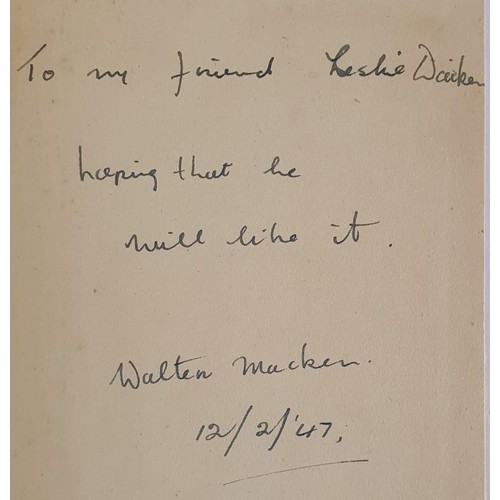 To my friend Leslie Daiken
hoping that he
will like it.
Walter Macken.
12/2/'47.